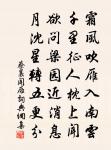 霜風吹雁入南雲
千里征人枕上聞
欲問梁園近消息
月沈星轉五更分
蔡襄聞雁詞典網奉